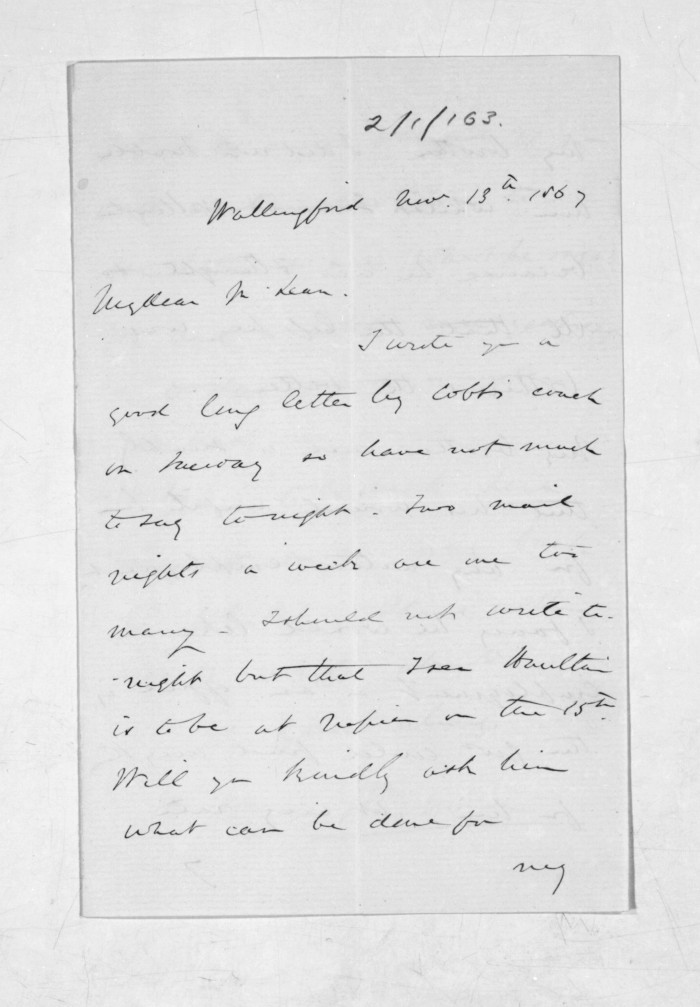 2/1/163.
Wallingford Nov. 13th 1867
My dear McLean.
I wrote you a
good long letter by Cobb's coach
on Tuesday so have not much
to say to-night - Two mail
nights a week are one too
many - I should not write to-
-night but that I see Haultain
is to be at Napier on the 15th
Will you kindly ask him
what can be done for
my